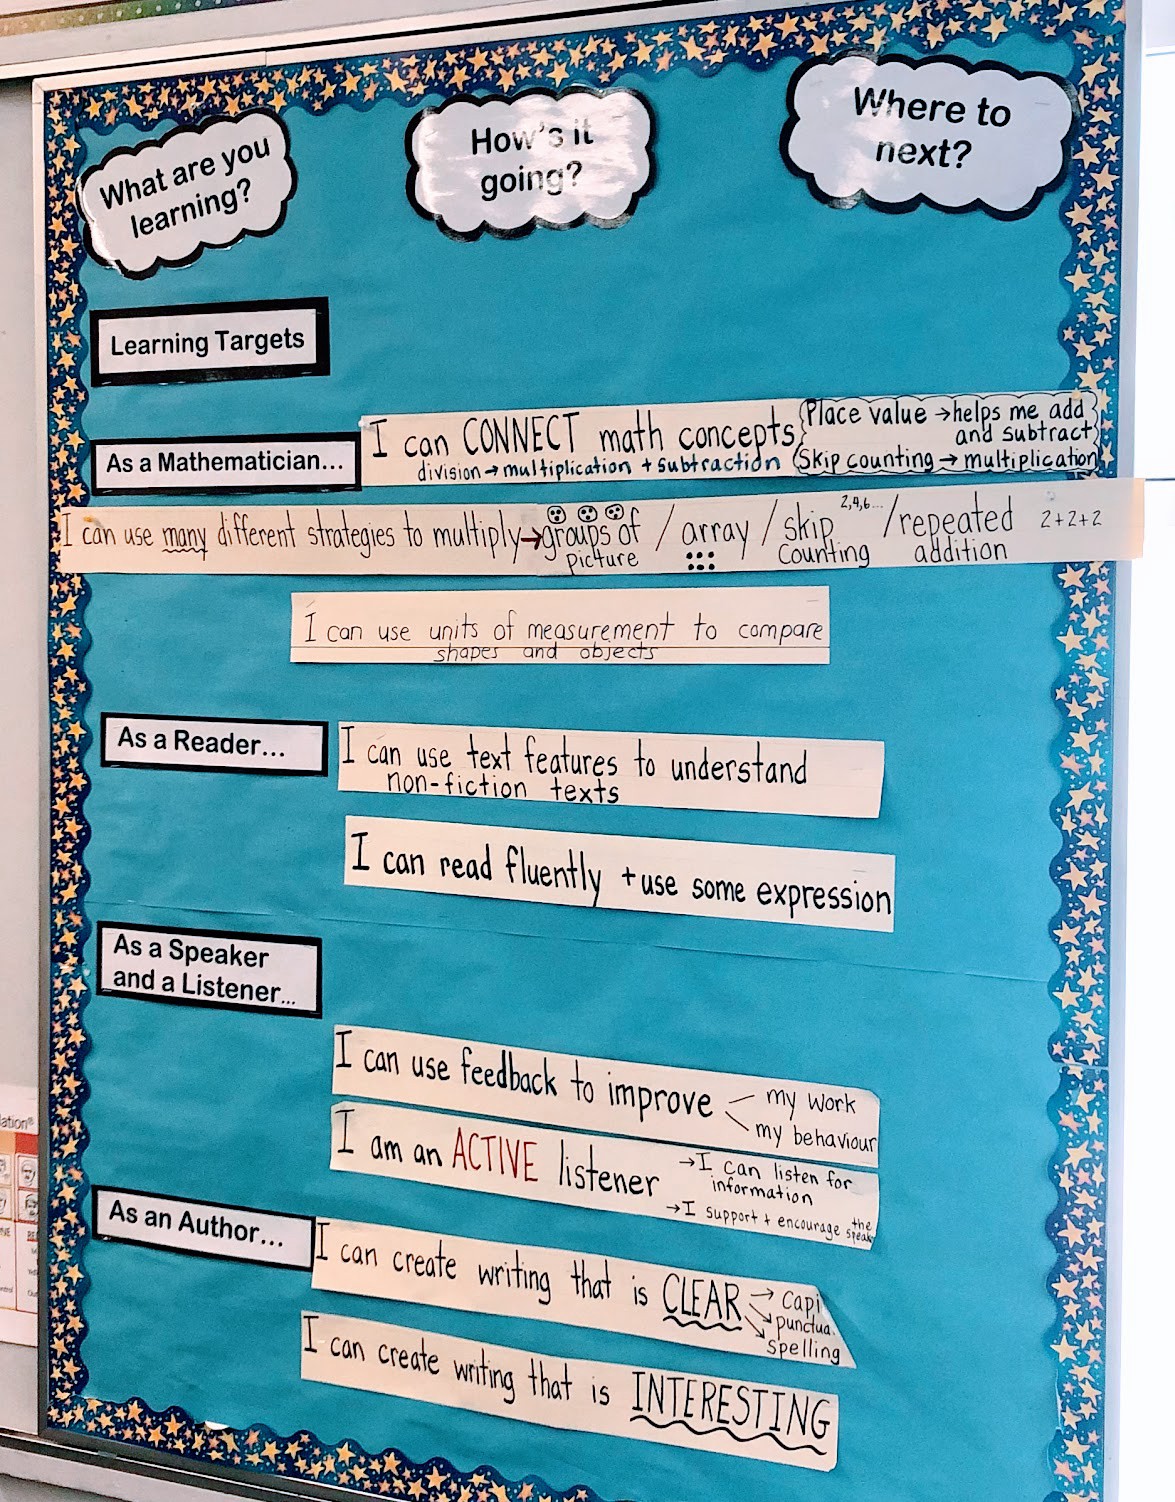 What are you
learning?
How's it
going?
Where to
next?
Learning Targets
As a Mathematician...
I can CONNECT math concepts
division → multiplication + subtraction
Place value → helps me add
and subtract
Skip counting → multiplication
I can use many different strategies to multiply → groups of / array / skip 2,4,6... / repeated 2+2+2
picture counting addition
I can use units of measurement to compare
shapes and objects
As a Reader...
I can use text features to understand
non-fiction texts
I can read fluently + use some expression
As a Speaker
and a Listener...
I can use feedback to improve
my work
my behaviour
I am an ACTIVE listener
→ I can listen for
information
→ I support + encourage the
As an Author...
I can create writing that is CLEAR
→ Capi
punctua.
spelling
I can create writing that is INTERESTING